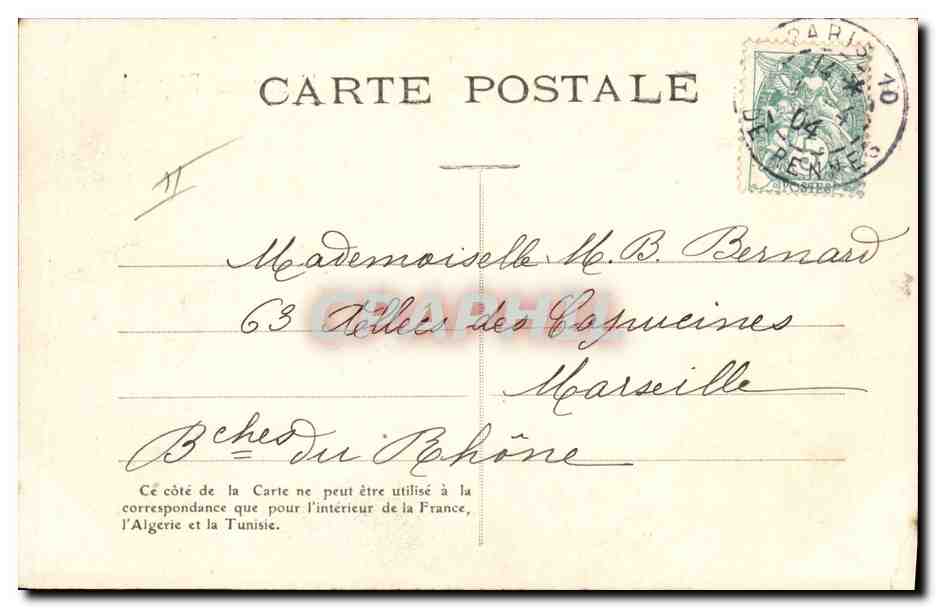 CARTE POSTALE
PARIS 10
14
04
R. DE RENNES
POSTES
11
Mademoiselle M. B. Bernard
63 Allées des Capucines
Marseille
Bches du Rhône
Ce côté de la Carte ne peut être utilisé à la
correspondance que pour l'intérieur de la France,
l'Algerie et la Tunisie.